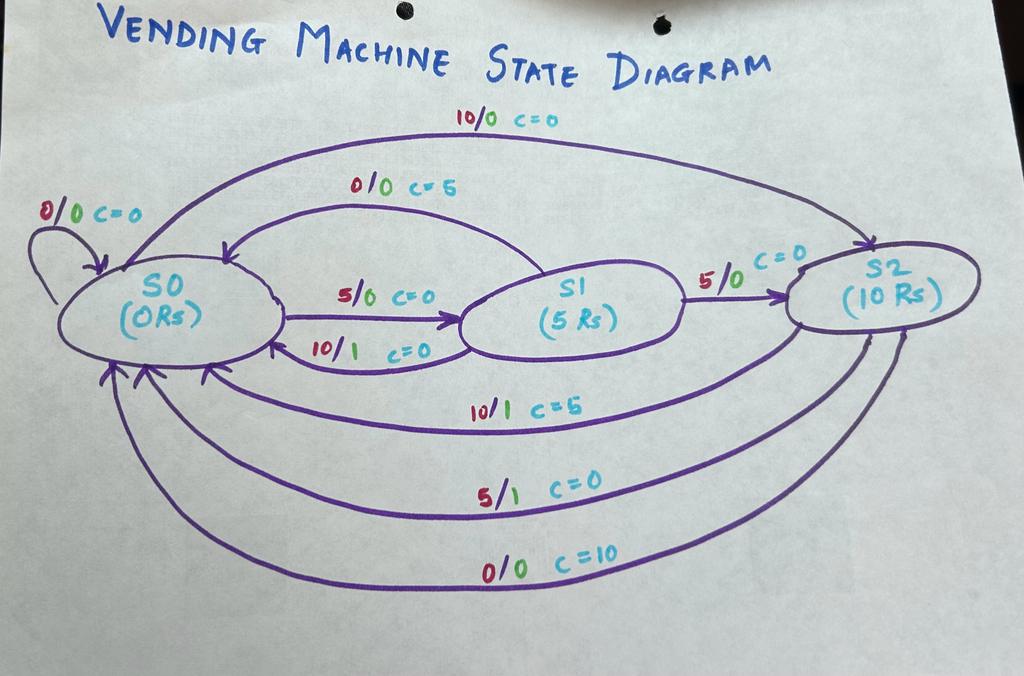 VENDING MACHINE STATE DIAGRAM
10/0 C=0
0/0 C=5
0/0 C=0
S0
(0Rs)
5/0 C=0
S1
(5 Rs)
5/0 C=0
S2
(10 Rs)
10/1 C=0
10/1 C=5
5/1 C=0
0/0 C=10